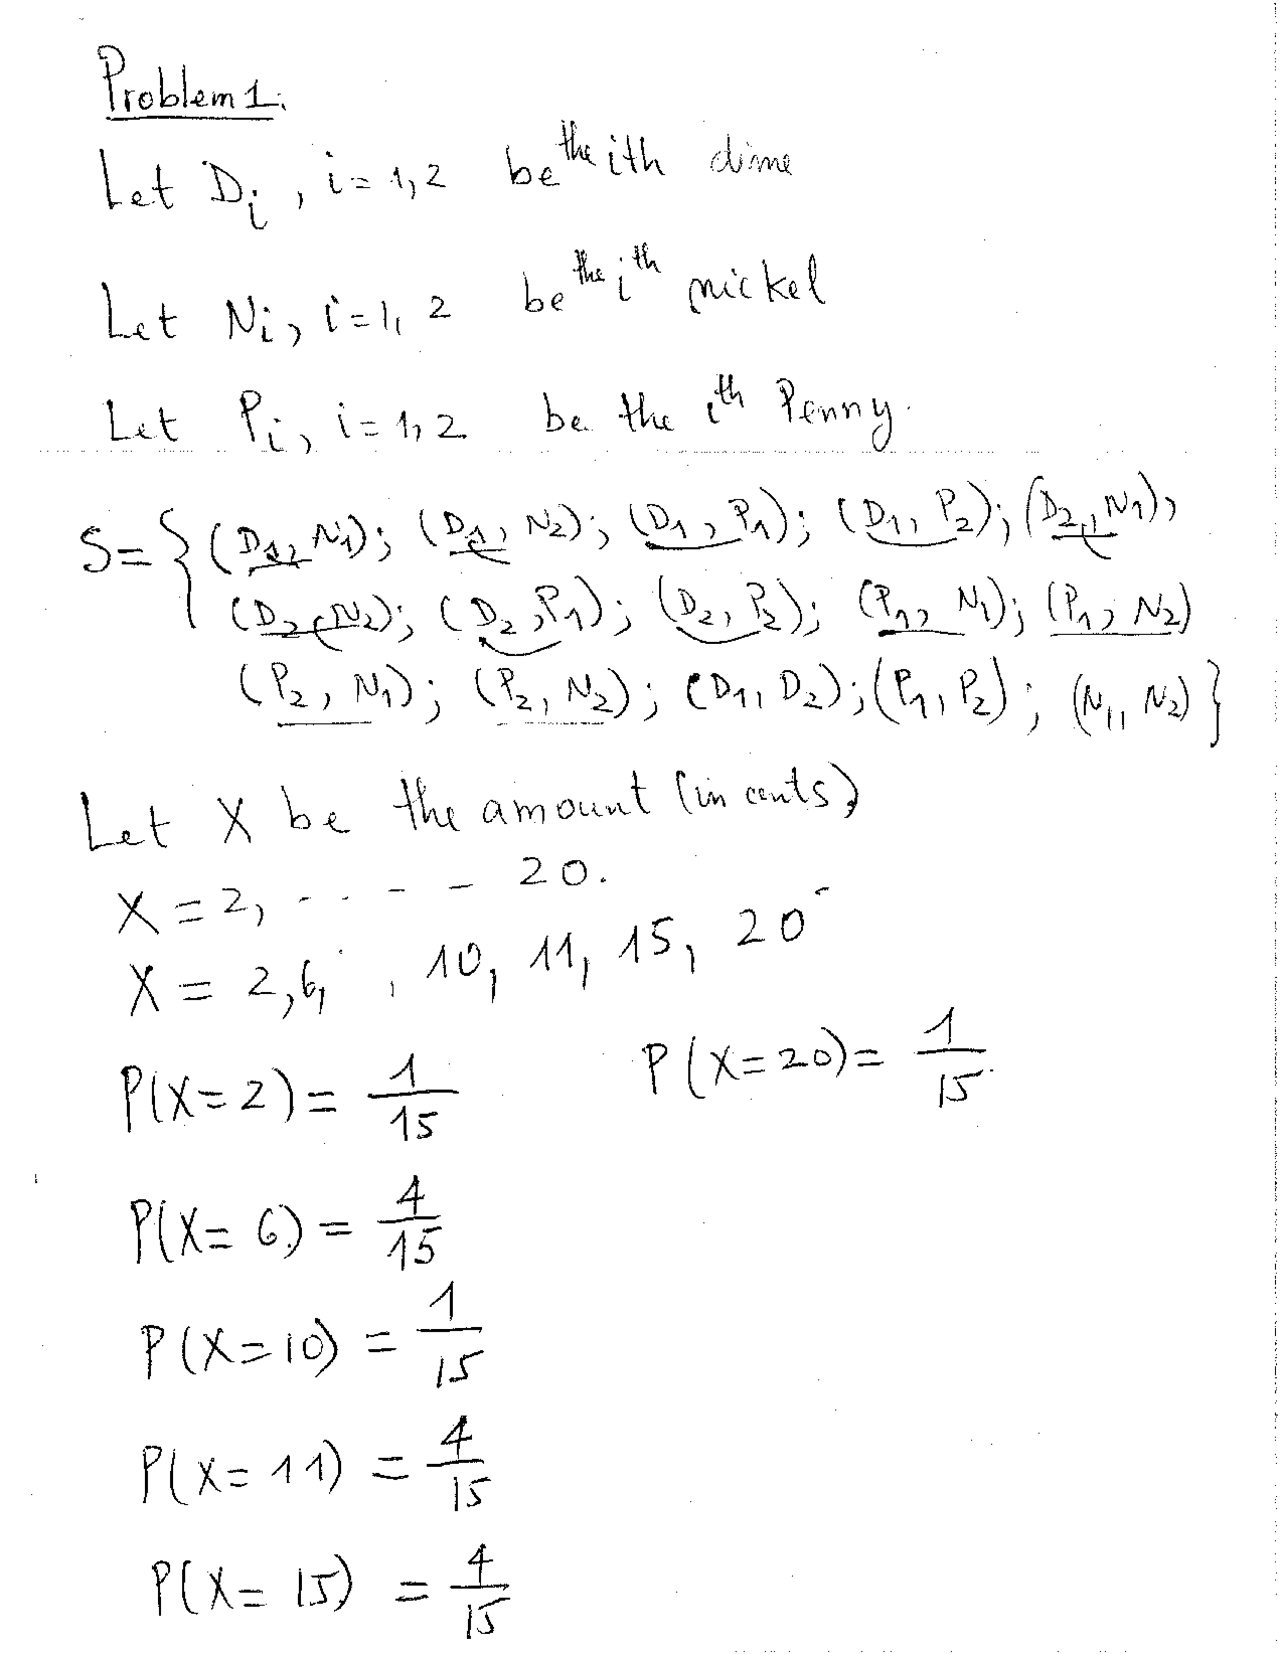 Problem 1.
Let Di, i = 1, 2 be the ith dime
Let Ni, i = 1, 2 be the ith nickel
Let Pi, i = 1, 2 be the ith Penny.
S = { (D1, N1); (D1, N2); (D1, P1); (D1, P2); (D2, N1),
(D2, N2); (D2, P1); (D2, P2); (P1, N1); (P1, N2)
(P2, N1); (P2, N2); (D1, D2); (P1, P2); (N1, N2) }
Let X be the amount (in cents)
X = 2, ---- 20.
X = 2, 6, , 10, 11, 15, 20
P(X=2) = 1/15 P(X=20) = 1/15
P(X=6) = 4/15
P(X=10) = 1/15
P(X=11) = 4/15
P(X=15) = 4/15